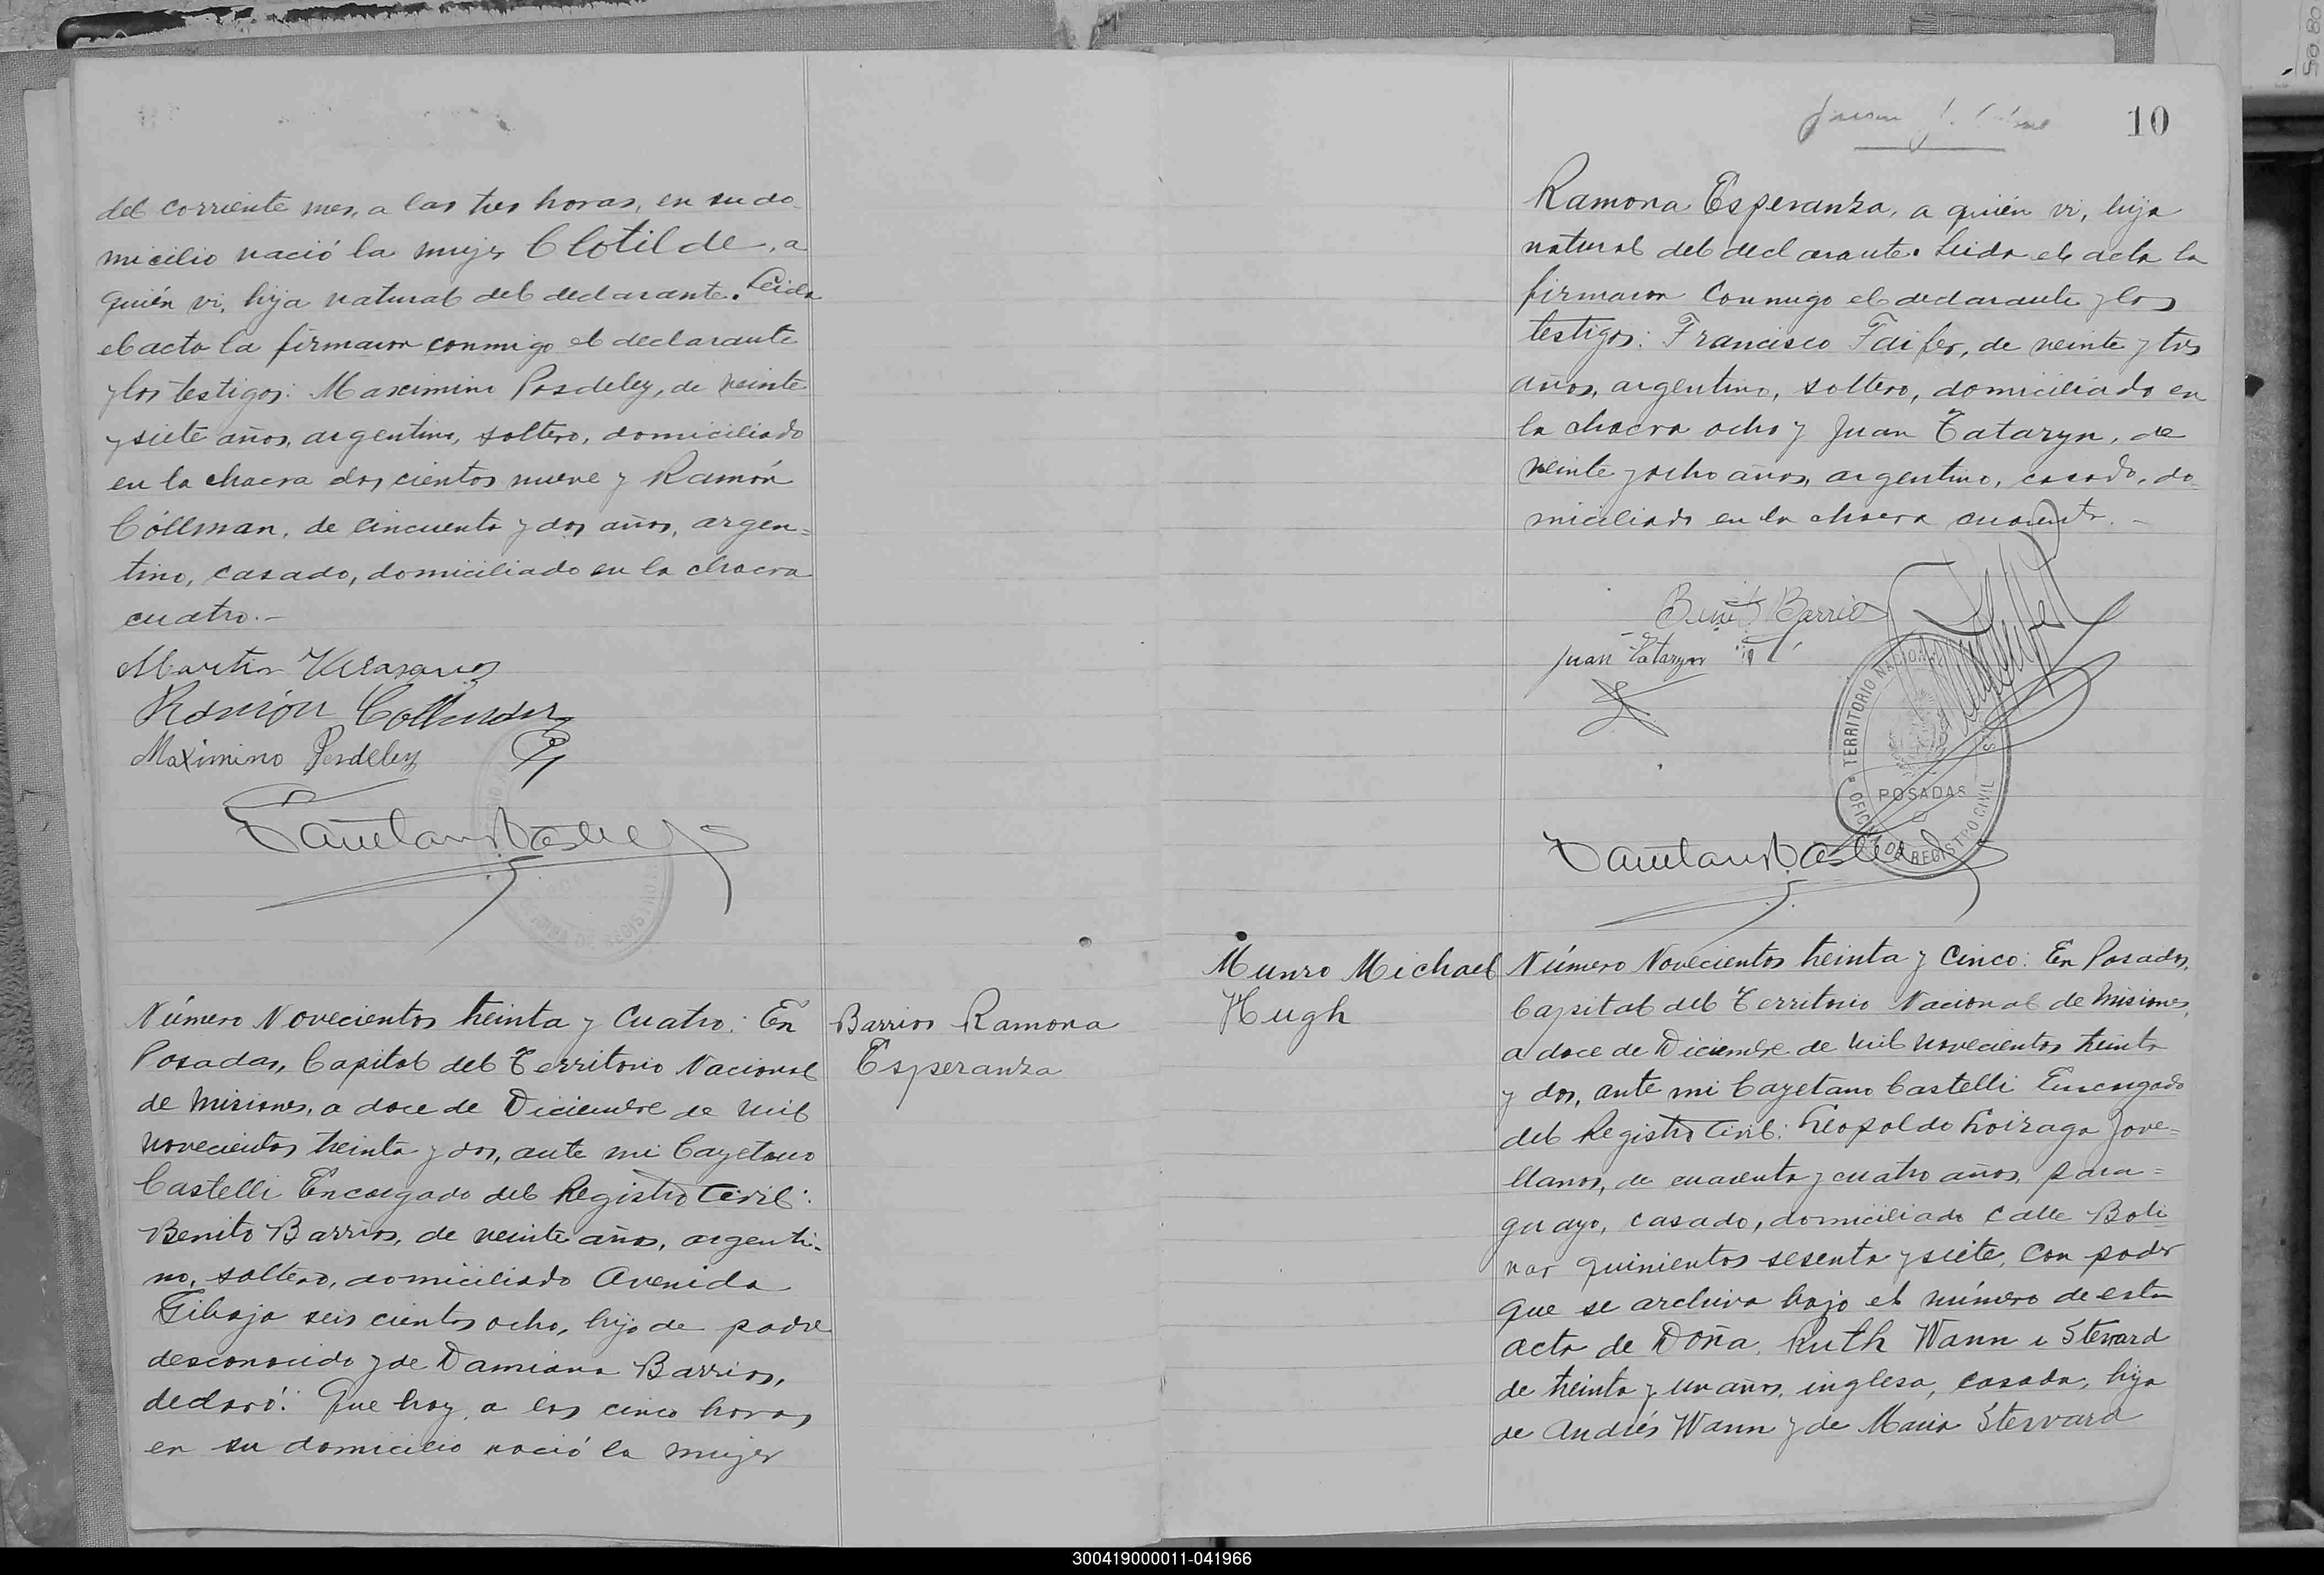 del corriente mes, a las tres horas, en su do-
micilio nació la mujer Clotilde, a
quién vi, hija natural del declarante. Leida
el acta la firmaron conmigo el declarante
y los testigos: Maximino Posdeley, de veinte
y siete años, argentino, soltero, domiciliado
en la chacra dos cientos nueve y Ramón
Cóllman, de cincuenta y dos años, argen=
tino, casado, domiciliado en la chacra
cuatro.-
Martin
Ramón Collman
Maximino Posdeley
Número Novecientos treinta y Cuatro: En
Posadas, Capital del Territorio Nacional
de Misiones, a doce de Diciembre de mil
novecientos treinta y dos, ante mi Cayetano
Castelli Encargado del Registro Civil:
Benito Barrios, de veinte años, argenti-
no, soltero, domiciliado Avenida
Tibaja seis cientos ocho, hijo de padre
desconocido y de Damiana Barrios,
declaró: Que hoy, a las cinco horas,
en su domicilio nació la mujer
Barrios Ramona
Esperanza
10
Ramona Esperanza, a quién vi, hija
natural del declarante. Leida el acta la
firmaron conmigo el declarante y los
testigos: Francisco Faifer, de veinte y tres
años, argentino, soltero, domiciliado en
la chacra ocho y Juan Tataryn, de
veinte y ocho años, argentino, casado, do-
miciliado en la chacra cuarenta.-
Benito Barrios
Juan Tataryn
TERRITORIO NACIONAL
POSADAS
OFICINA DE REGISTRO CIVIL
Munro Michael
Hugh
Número Novecientos treinta y Cinco: En Posadas,
Capital del Territorio Nacional de Misiones,
a doce de Diciembre de mil novecientos treinta
y dos, ante mi Cayetano Castelli Encargado
del Registro Civil: Leopoldo Loizaga Jove=
llanos, de cuarenta y cuatro años, para=
guayo, casado, domiciliado calle Boli
var quinientos sesenta y siete, con poder
que se archiva bajo el número de esta
acta de Doña Ruth Wann e Steward
de treinta y un años, inglesa, casada, hija
de Andrés Wann y de Maria Steward
300419000011-041966